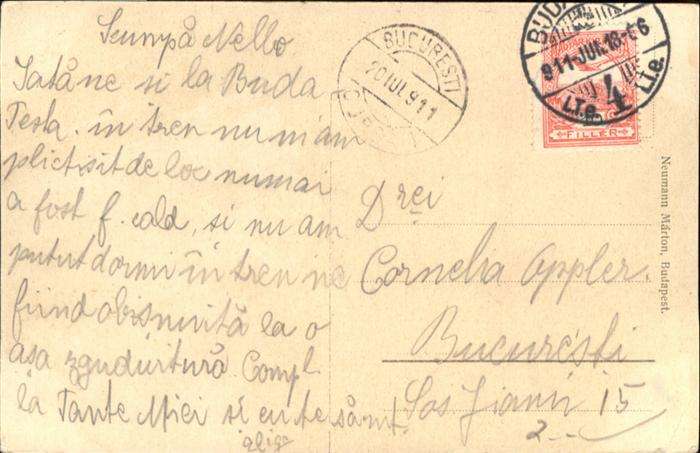 Scumpă Nello
Iatăne si la Buda
Pesta. în tren nu m'am
plictisit de loc numai
a fost f. cald, si nu am
putut dormi în tren ne
fiind obisnuită la o
asa zguduitură. Compl.
la Tante Mici si eu te sărut.
D rei
Cornelia Appler.
Bucuresti
Sos Jianu 15
2
BUCURESTI
20 IUL 911
BUDA
911 JUL 18
4
MAGYAR
FILLER
Neumann Márton, Budapest.